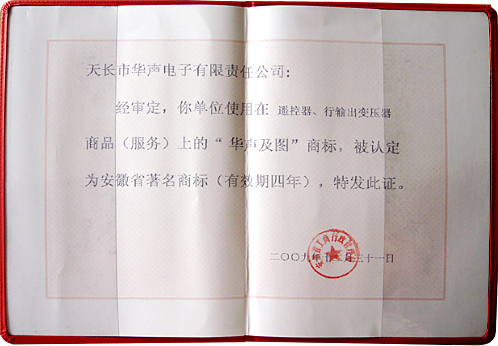 天长市华声电子有限责任公司：
经审定，你单位使用在 遥控器、行输出变压器
商品（服务）上的“华声及图”商标，被认定
为安徽省著名商标（有效期四年），特发此证。
二〇〇九年十二月三十一日